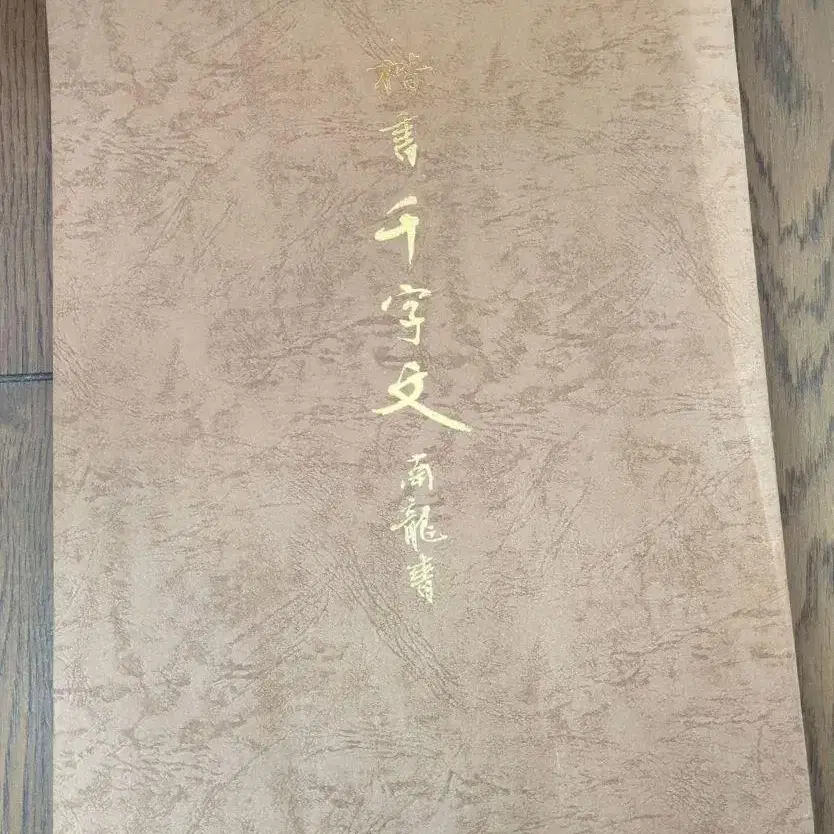 楷書千字文
南龍書